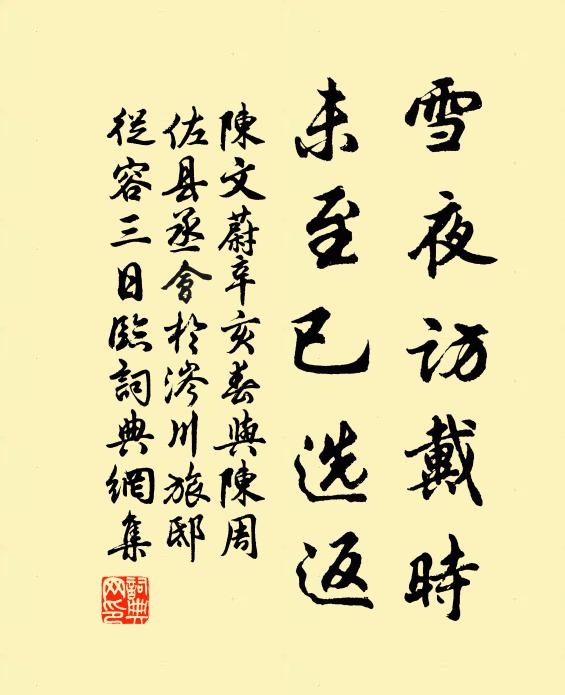 雪夜访戴時
未至已选返
陳文蔚辛亥春與陳周
佐县丞會於涔川旅邸
從容三日臨詞典網集
詞典
网印